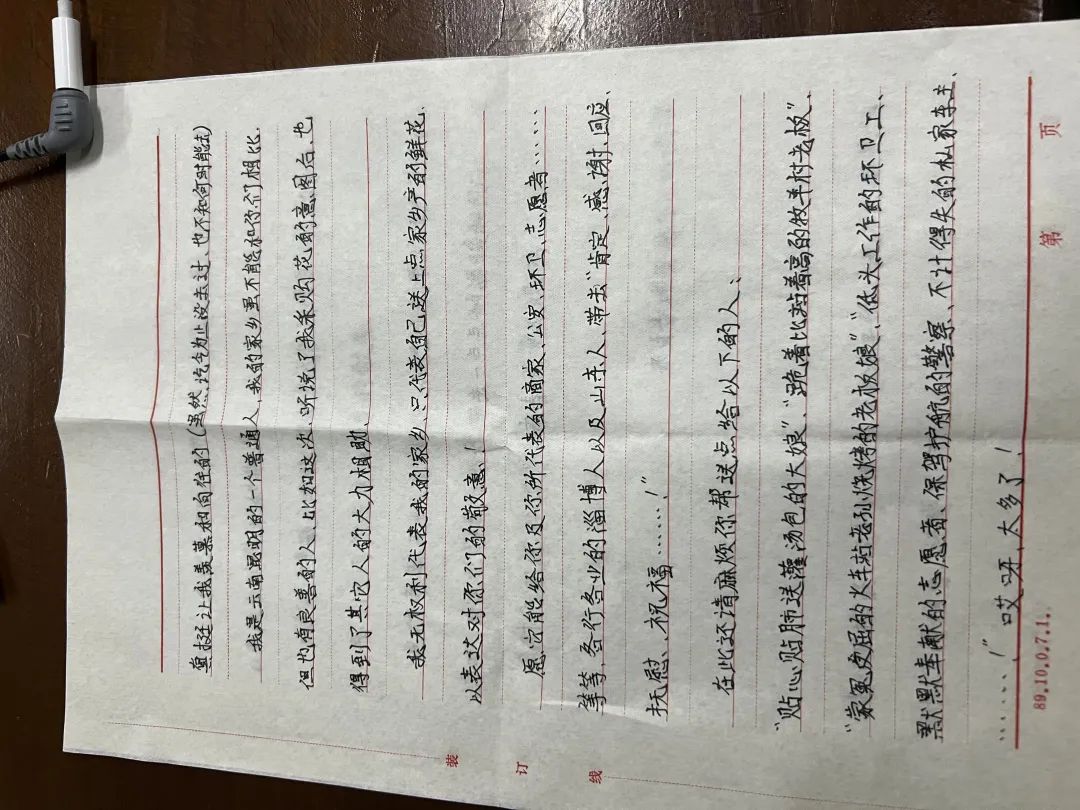 真挺让我羡慕和向往的(虽然迄今为止没去过、也不知何时能去)
我是云南昆明的一个普通人,我的家乡虽不能和你们相比.
但也有良善的人,比如这次、听说了我采购花的意图后、也
得到了其它人的大力相助.
我无权利代表我的家乡、只代表自己送上点家乡产的鲜花.
以表达对你们的敬意!
愿它能给你及你所代表的商家、公安、环卫、志愿者……
等等,各行各业的淄博人以及山东人、带去“肯定、感谢、回应、
抚慰、祝福……!”
在此还请麻烦你帮送点给以下的人、
“贴心贴肺送灌汤包的大娘”、“跪着比站着高的牧羊村老板”、
“蒙冤受屈的火车站老孙烧烤的老板娘”、“低头工作的环卫工、
默默奉献的志愿者、保驾护航的警察、不计得失的私家车主、
……!”哎呀,太多了!
89.10.0.7.1.
第 页
装
订
线